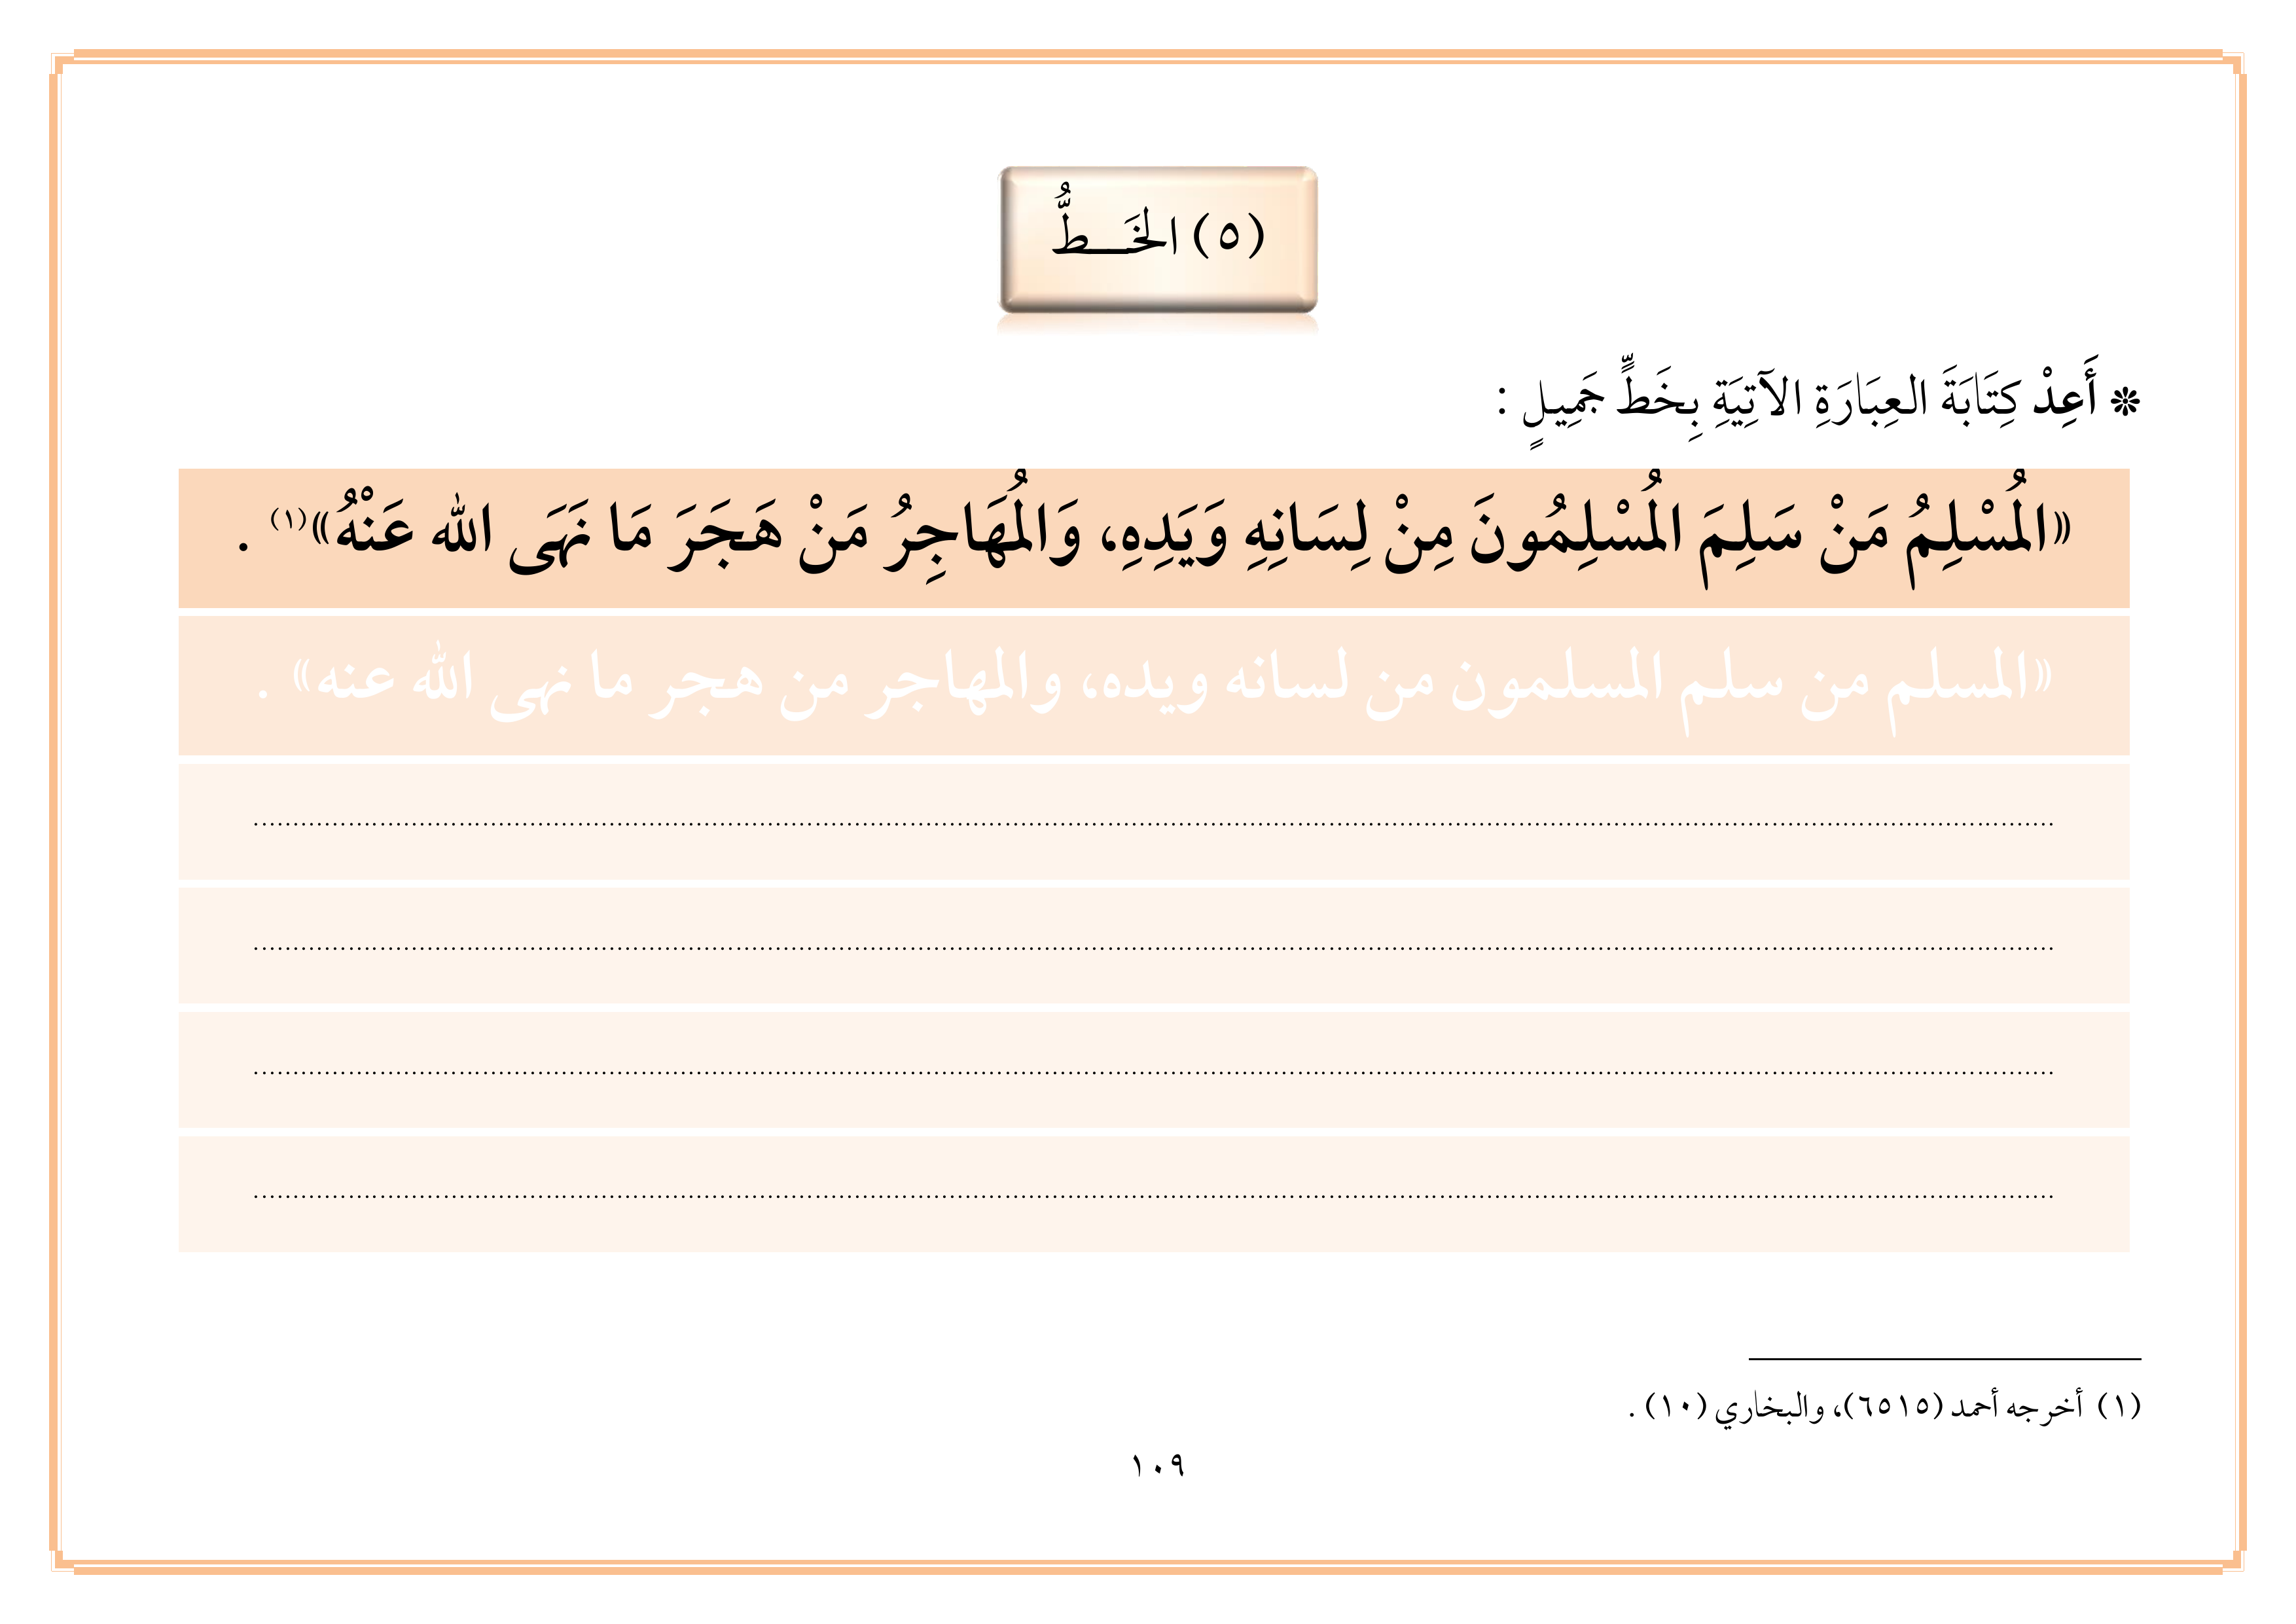 (٥) الخَـــطُّ
❇ أَعِدْ كِتَابَةَ العِبَارَةِ الآتِيَةِ بِخَطٍّ جَمِيلٍ :
«المُسْلِمُ مَنْ سَلِمَ المُسْلِمُونَ مِنْ لِسَانِهِ وَيَدِهِ، وَالمُهَاجِرُ مَنْ هَجَرَ مَا نَهَى الله عَنْهُ»(١) .
«المسلم من سلم المسلمون من لسانه ويده، والمهاجر من هجر ما نهى الله عنه» .
(١) أخرجه أحمد (٦٥١٥)، والبخاري (١٠) .
١٠٩